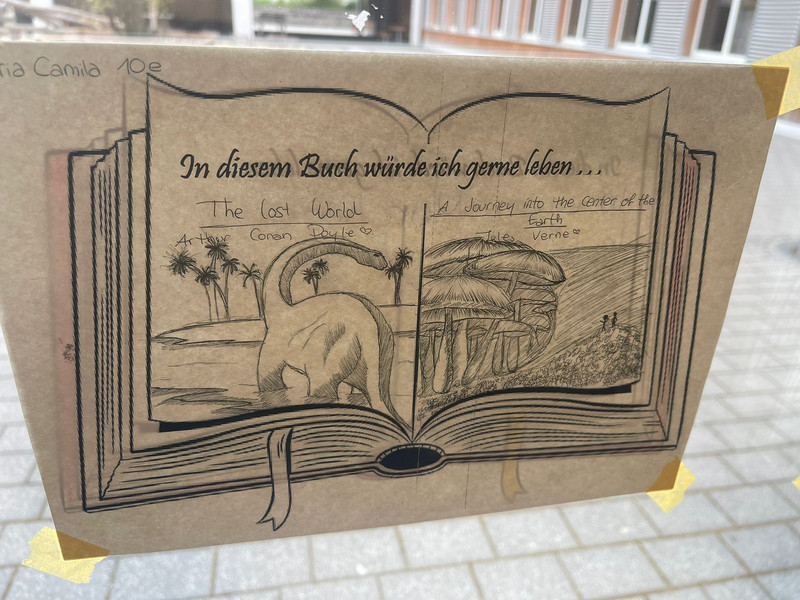 ria Camila 10e
In diesem Buch würde ich gerne leben...
The Lost World
Arthur Conan Doyle
A Journey into the Center of the
Earth
Jules Verne